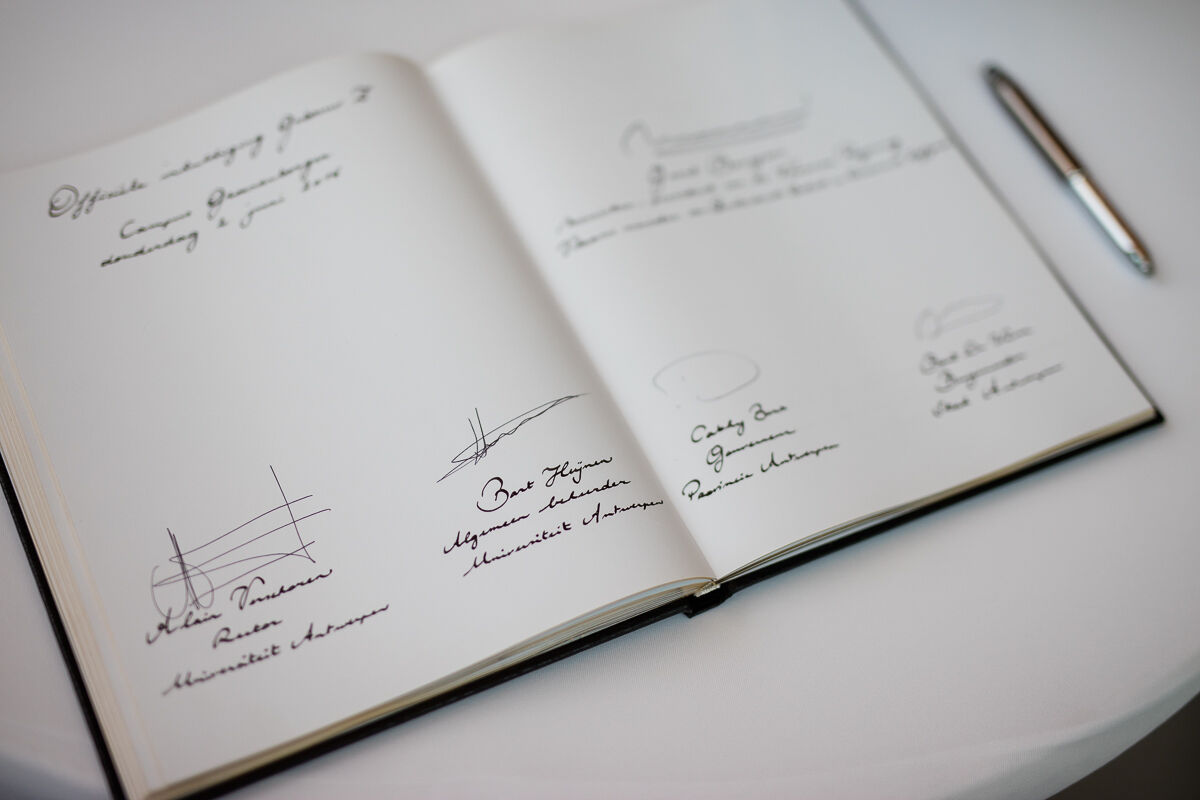 Officiële inhuldiging Gebouw Z
Campus Groenenborger
donderdag 2 juni 2016
Alain Verschoren
Rector
Universiteit Antwerpen
Bart Heijnen
Algemeen beheerder
Universiteit Antwerpen
Cathy Berx
Gouverneur
Provincie Antwerpen
Bart De Wever
Burgemeester
Stad Antwerpen